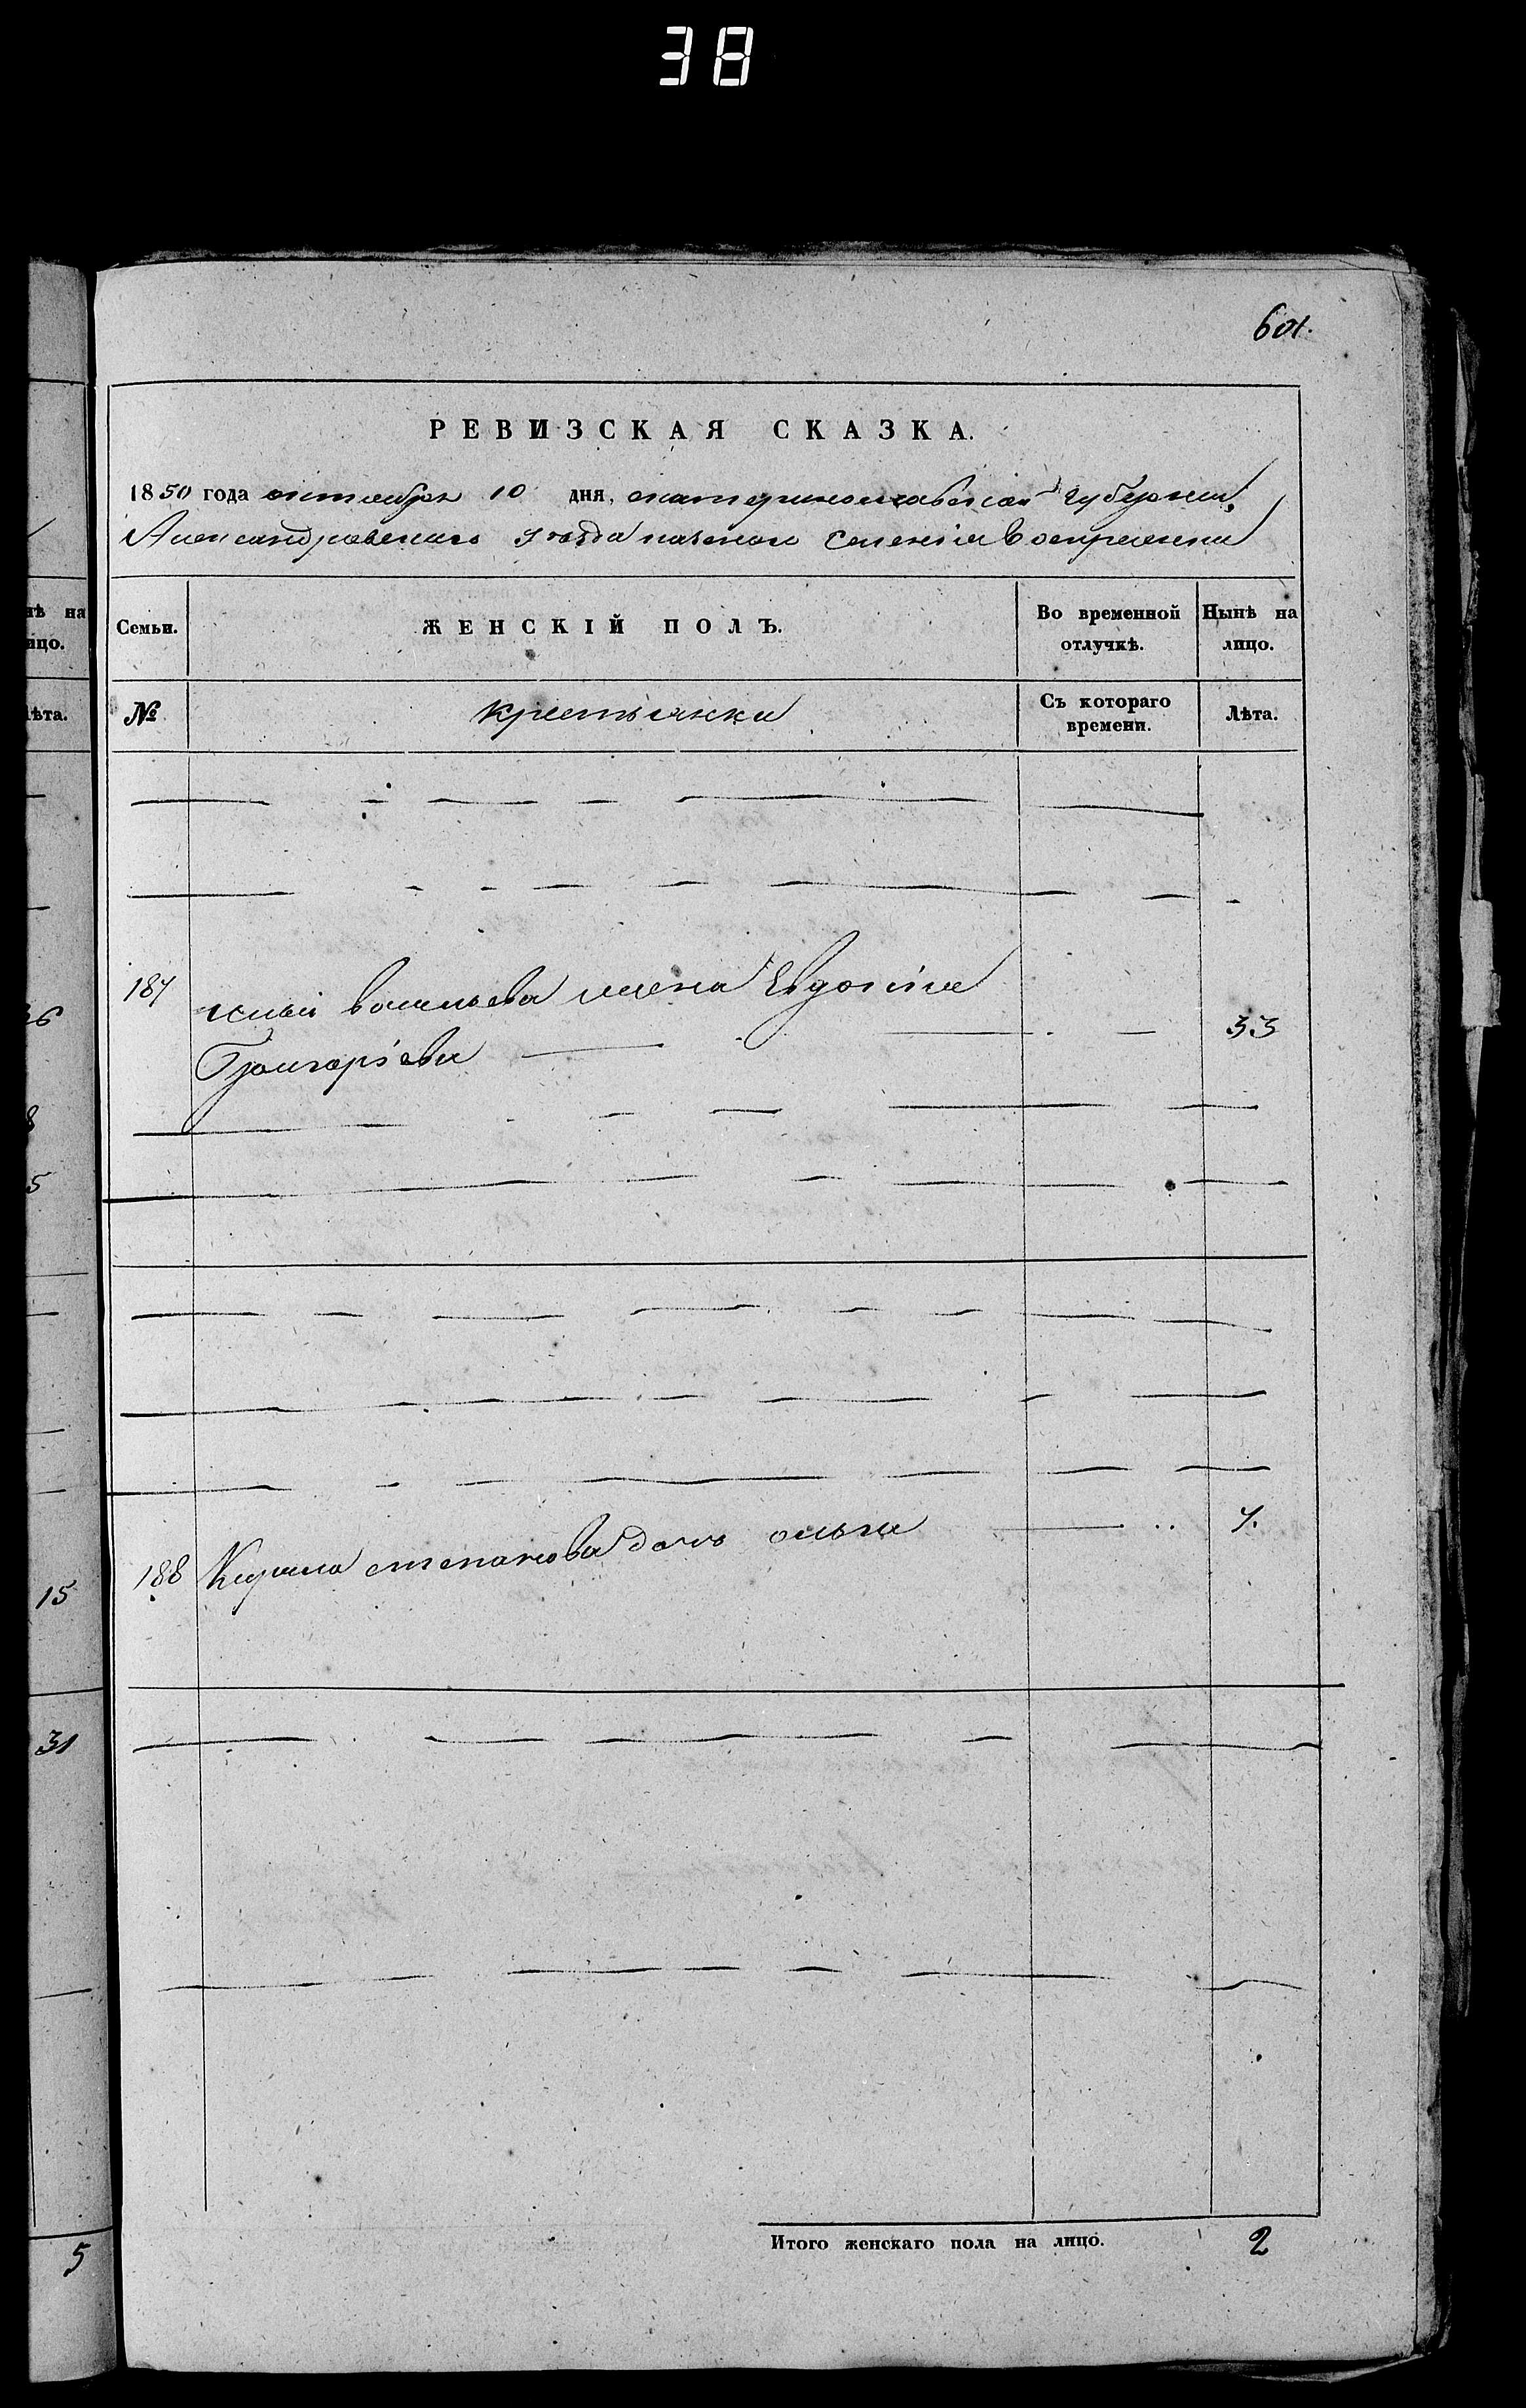 38
601.
РЕВИЗСКАЯ СКАЗКА.
1850 года октября 10 дня, екатеринославской губернии,
Александровскаго уезда казенного селения Воскресенки
Семьи. ЖЕНСКІЙ ПОЛЪ. Во временной отлучкѣ. Нынѣ на лицо.
№ крестьянки Съ котораго времени. Лѣта.
187 васильева жена Евдокия
Григорьева 33
188 Кирила степанова дочь ольга 7.
Итого женскаго пола на лицо. 2
нѣ на
ицо.
ѣта.
36
8
5
15
31
5